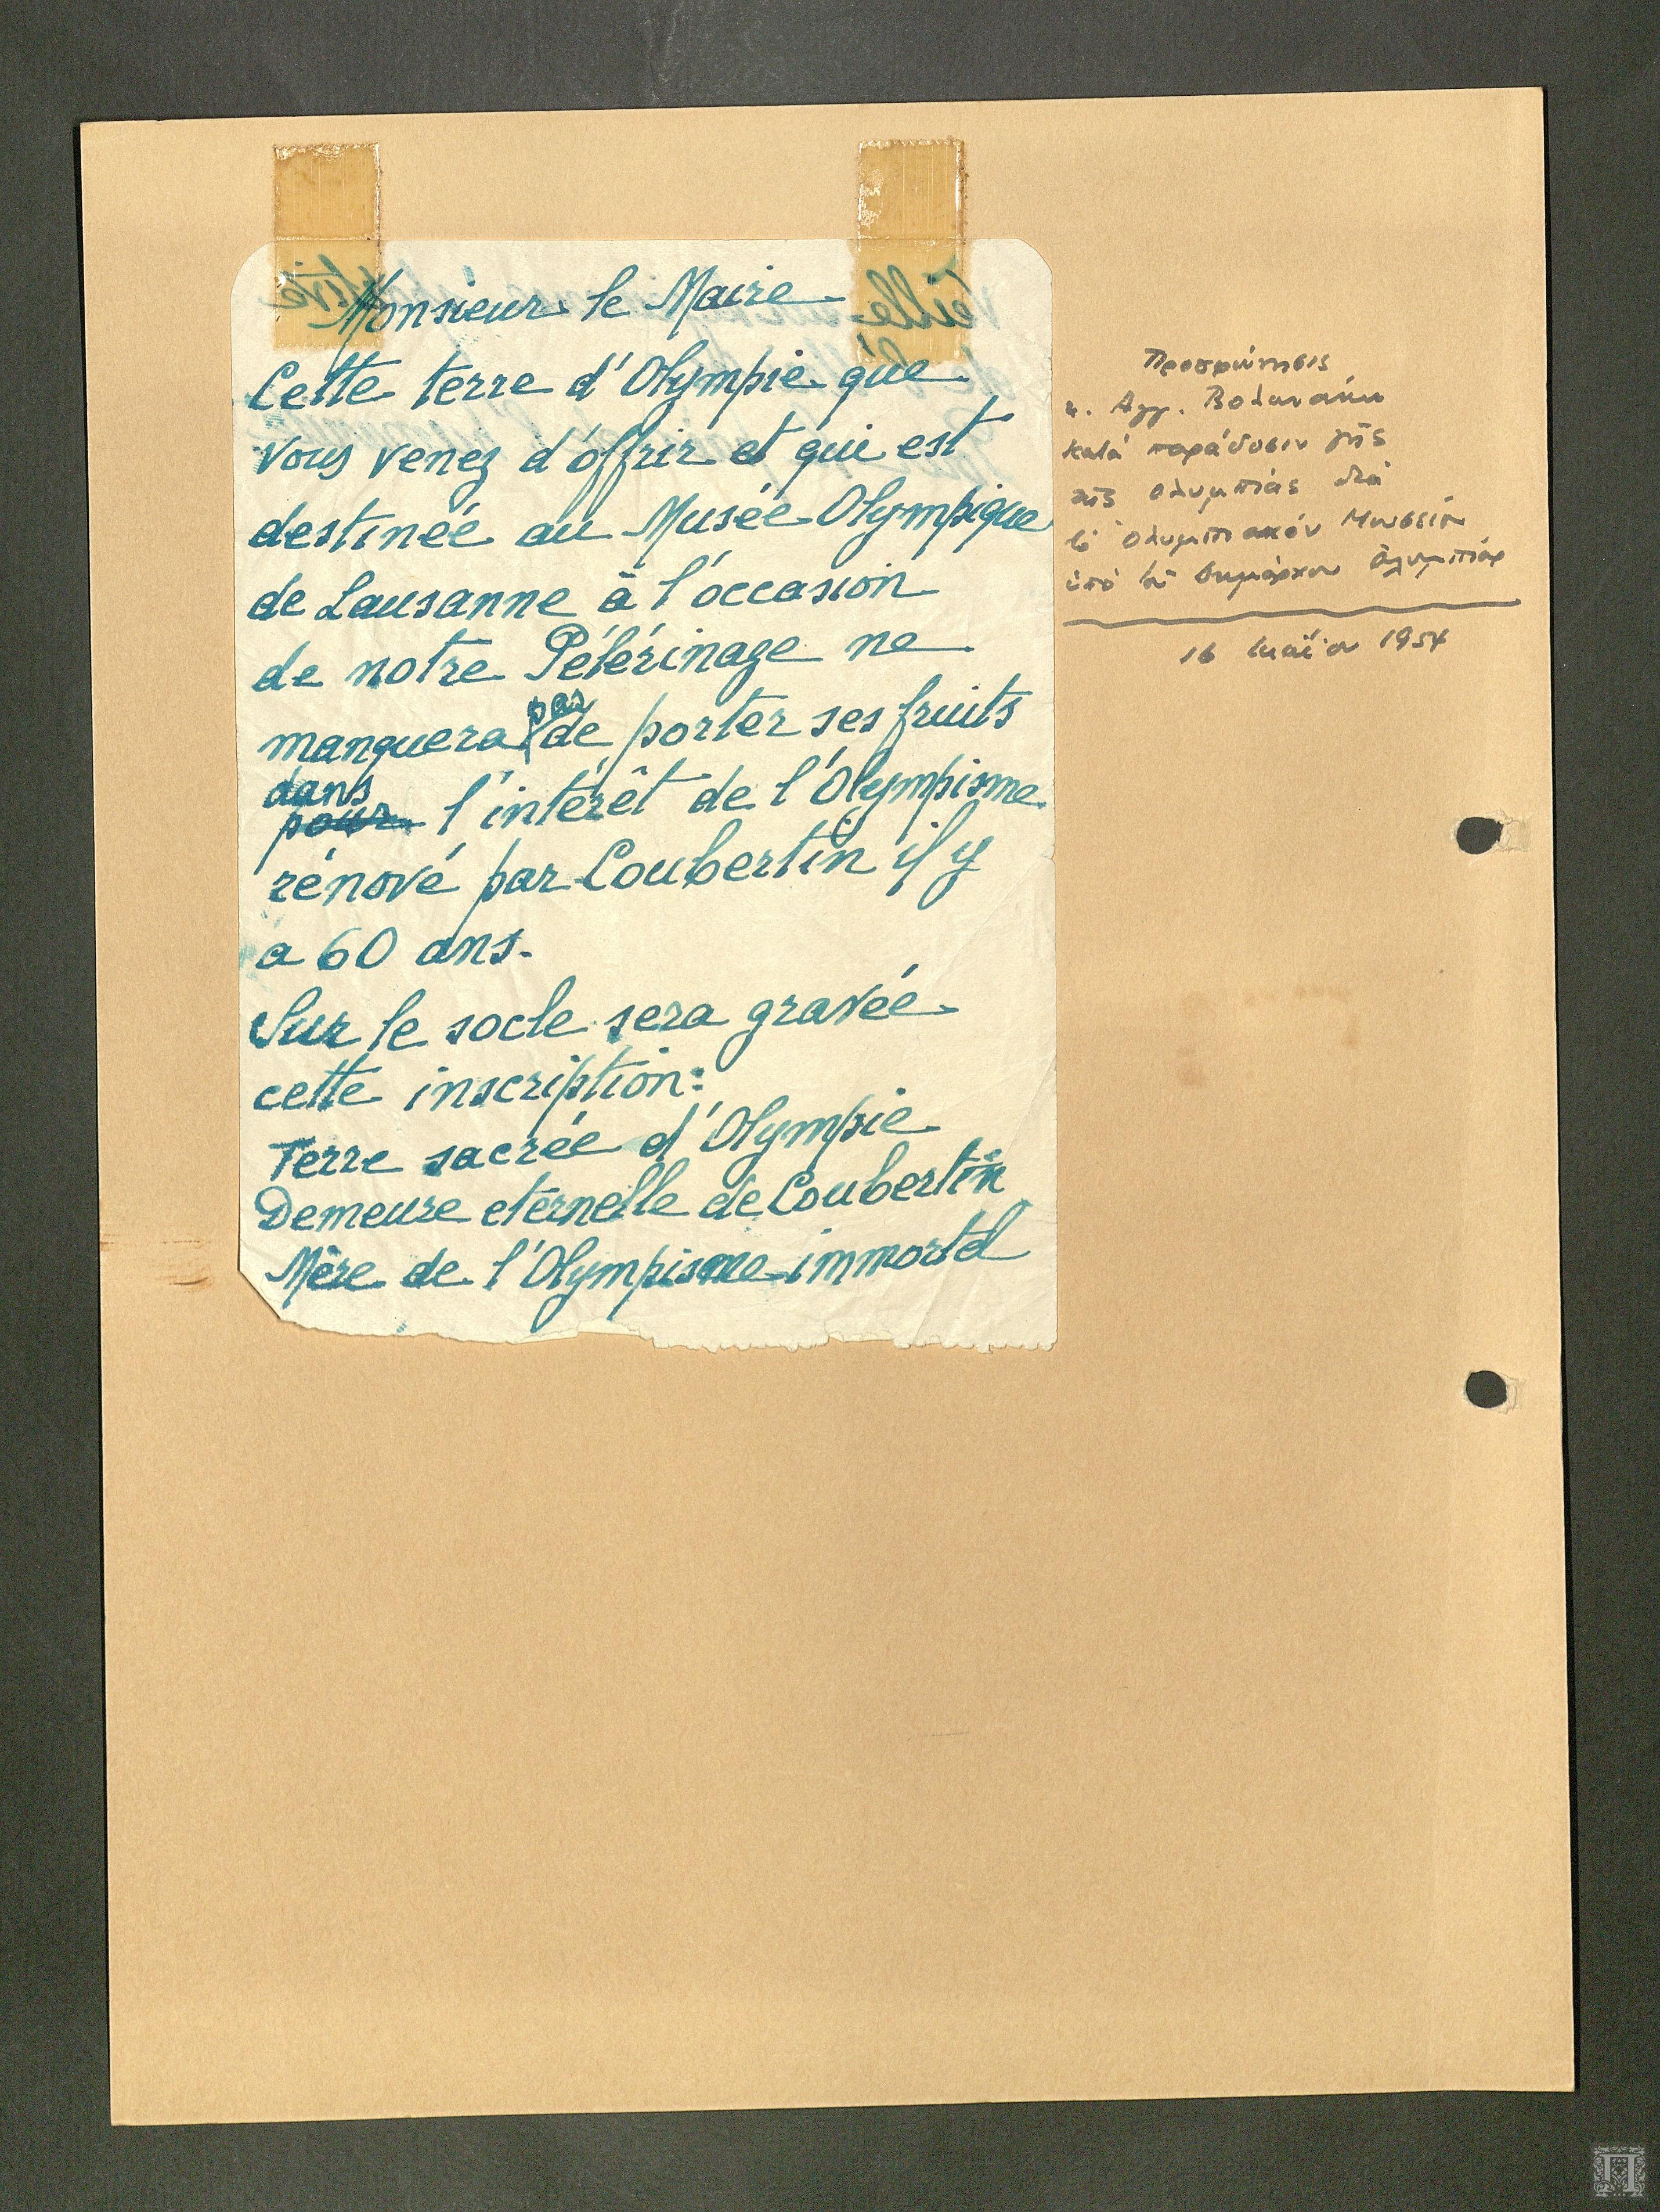 Monsieur le Maire
Cette terre d'Olympie que
vous venez d'offrir et qui est
destinée au Musée Olympique
de Lausanne à l'occasion
de notre Pélérinage ne
manquera pas de porter ses fruits
dans
pour l'intérêt de l'Olympisme
rénové par Coubertin il y
a 60 ans.
Sur le socle sera gravée
cette inscription:
Terre sacrée d'Olympie
Demeure eternelle de Coubertin
Mère de l'Olympisme immortel
Προσφώνησις
κ. Αγγ. Βολανάκη
κατά παράδοσιν γῆς
τῆς Ολυμπίας διά
τό Ολυμπιακόν Μουσεῖον
ὑπό τοῦ δημάρχου Ολυμπίας
16 Μαΐου 1954